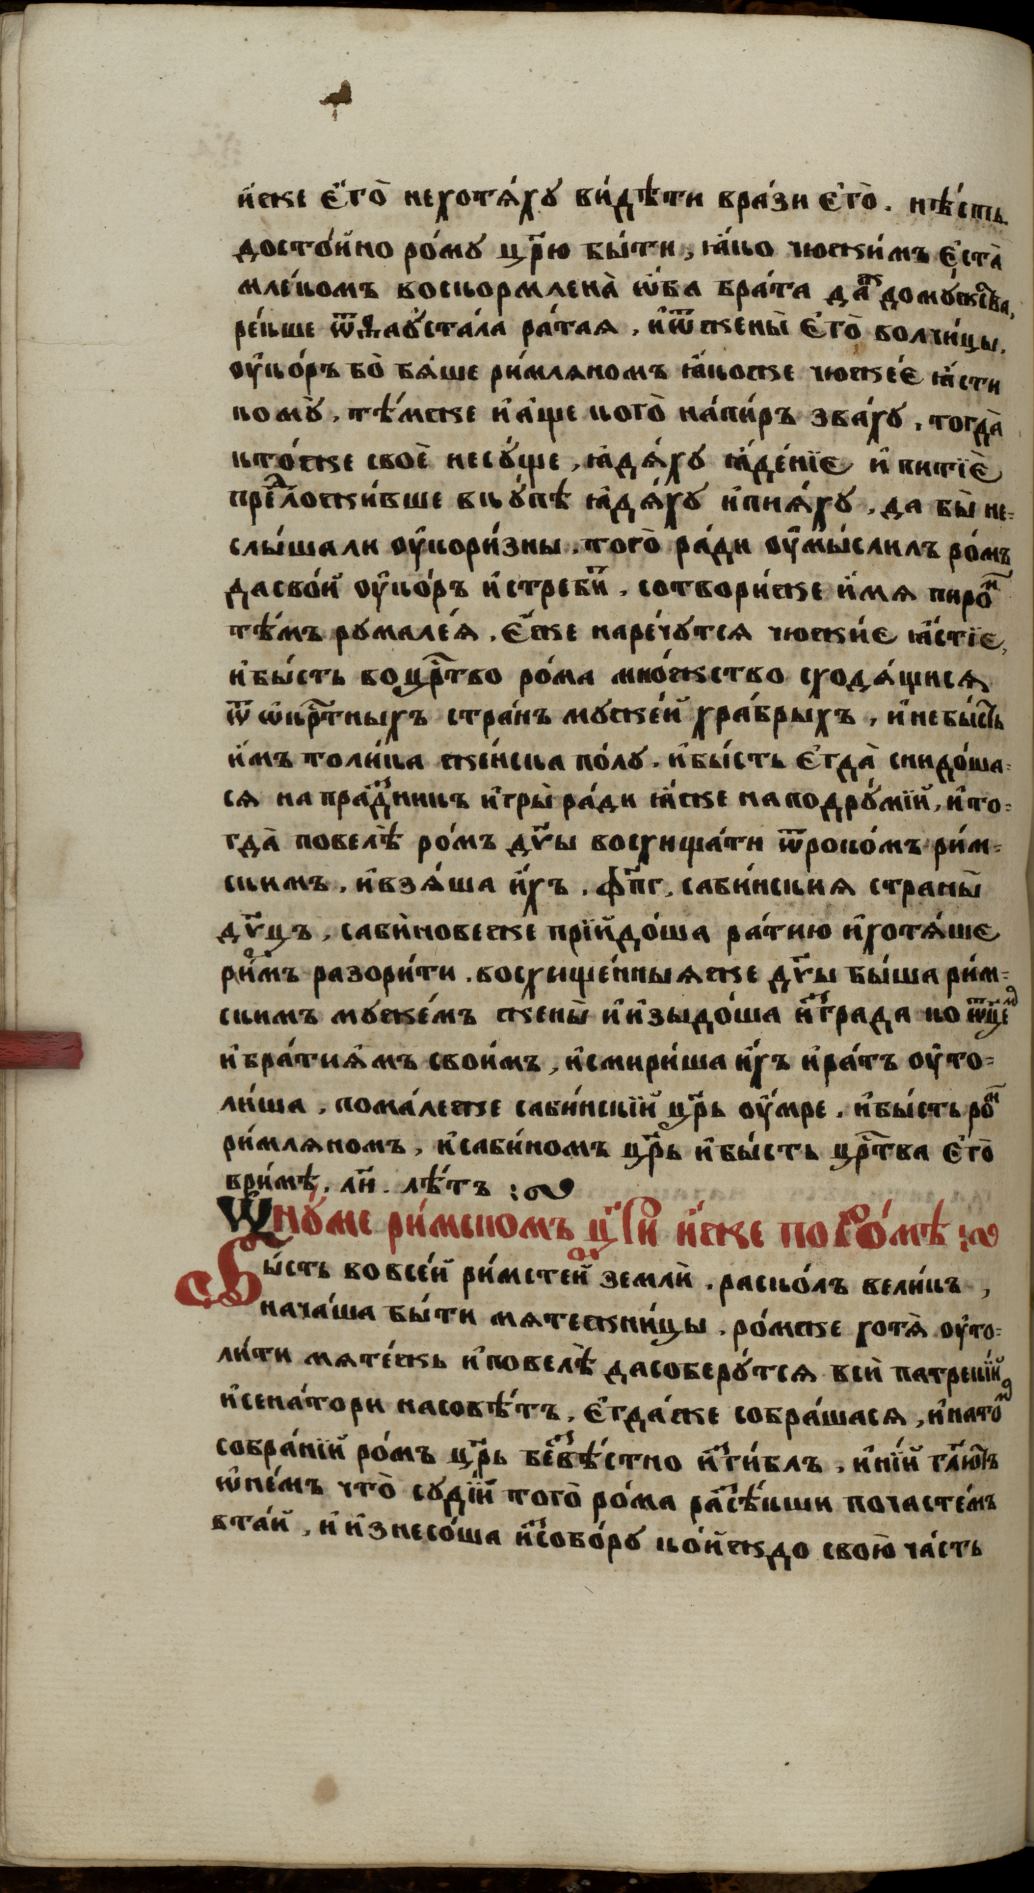 и҆́же є҆гѡ̀ не хотѧ́хꙋ ви́дѣти врази́ є҆гѡ̀. нѣ́сть
досто́йно ро́мꙋ цр҃ю бы́ти, ꙗ҆́ко чюжи́мъ є҆ста̀
мле́комъ воскормлена̀ ѡ҆́ба бра́та да до мꙋ́жства,
ре́кше ѿ ѳаѵста́ла ра́таѧ, и҆ ѿ жены̀ є҆гѡ̀ волчи́цы,
оу҆ко́ръ бо̀ бѧ́ше ри́млѧномъ ꙗ҆́коже чюже́є ꙗ҆́сти
комꙋ̀, тѣ́мже и҆ а҆́ще кого̀ на пи́ръ зва́хꙋ, тогда̀
кто́же своѐ несꙋ́ще, ꙗ҆дѧ́хꙋ ꙗ҆де́нїє и҆ питїѐ
предложи́вше вкꙋ́пѣ ꙗ҆дѧ́хꙋ и҆ пиѧ́хꙋ, да бы̀ не-
слы́шали оу҆кори́зны, того̀ ра́ди оу҆мы́слилъ ро́мъ
да сво́й оу҆ко́ръ и҆стреби́т, сотвори́же и҆́мѧ пиро́м
тѣ́мъ рꙋмале́ѧ, є҆́же нарече́тсѧ чюжи́є ꙗ҆́стїє,
и҆ бы́сть во цр҃тво ро́ма мно́жство сходѧ́щисѧ
ѿ ѡ҆кр҃тныхъ стра́нъ мꙋже́й хра́брыхъ, и҆ не бы́сть
и҆́мъ толи́ка же́нска по́лꙋ, и҆ бы́сть є҆гда̀ снидо́ша-
сѧ на пра́здникъ и҆гры̀ ра́ди ꙗ҆́же на подрꙋ́мїй, и҆ то-
гда̀ повелѣ̀ ро́мъ дв҃ы восхища́ти ѿроко́мъ ри́м-
скимъ, и҆ взѧ́ша и҆́хъ, ф҃пг, саби́нскиѧ страны̀
дв҃цъ, саби́новеже прїйдо́ша ра́тию и҆ хотѧ́ше
ри́мъ разори́ти, восхище́нныѧже дв҃ы бы́ша ри́м-
скимъ мꙋже́мъ жены̀ и҆ и҆зыдо́ша и҆з гра́да ко ѿцем
и҆ бра́тиѧмъ свои́мъ, и҆ смири́ша и҆́хъ и҆ ра́тъ оу҆то-
ли́ша, пома́леже саби́нскїй цр҃ь оу҆́мре, и҆ бы́сть ро́м
ри́млѧномъ, и҆ саби́номъ цр҃ь и҆ бы́сть цр҃тва є҆гѡ̀
в ри́мѣ, л҃и, лѣ́тъ
Ѡ҆ нꙋ́ме ри́мском цр҃и и҆́же по ро́мѣ
Бы́сть во все́й ри́мстей землѝ, раско́лъ вели́къ,
нача́ша бы́ти мѧтежни́цы, ро́мже хотѧ̀ оу҆то-
ли́ти мѧте́жь и҆ повелѣ̀ да соберꙋ́тсѧ всѝ патрекїи
и҆ сена́тори на совѣ́тъ, є҆гда́же собра́шасѧ, и҆ на то́м
собра́нїй ро́мъ цр҃ь безвѣ́стно и҆зги́блъ, и҆нїй гл҃ютъ
ѡ҆ не́мъ что̀ сꙋдїѝ того̀ ро́ма разсѣ́кши по часте́мъ
в та́й, и҆ и҆знесо́ша и҆з собо́рꙋ ко́йждо свою̀ ча́сть